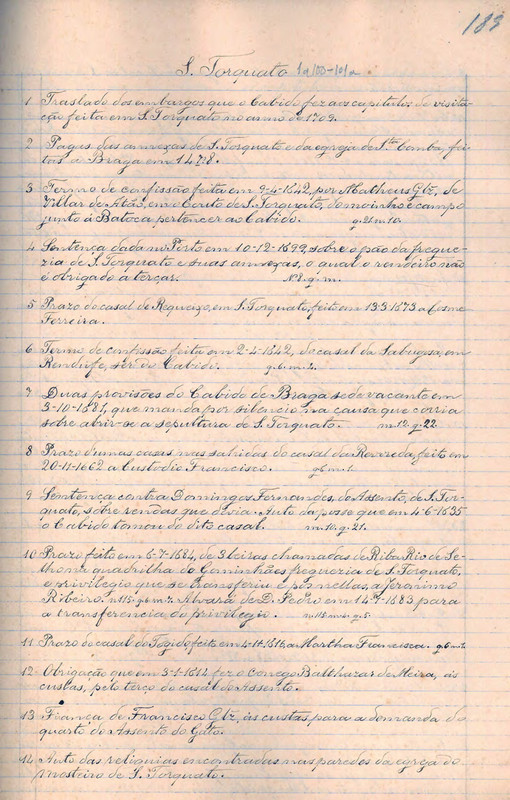 183
S. Torquato
1 Traslado dos embargos que o Cabido fez aos capitulos de visita-
ção feita em S. Torquato no anno de 1709.
2 Pagas das annexas de S. Torquato e da egreja de Sta Comba, fei-
tas a Braga em 1478.
3 Termo de confissão feita em 9-4-1642, por Matheus Glz, de
Villar de Atão, em o Couto de S. Torquato, do moinho e campo
junto á Batoca pertencer ao Cabido. g. 21 m. 10.
4 Sentença dada no Porto em 10-12-1699, sobre o pão da fregue-
zia de S. Torquato e suas annexas, o qual o rendeiro não
é obrigado a terçar. N. 8. g. m.
5 Prazo do casal de Requeixo, em S. Torquato, feito em 13-3-1673 a Cosme
Ferreira.
6 Termo de confissão feita em 2-4-1642, do casal da Sabugosa, em
Rendufe, ser do Cabido. g. 6 m. 2.
7 Duas provisões do Cabido de Braga sede vacante em
3-10-1681, que manda por silencio na causa que corria
sobre abrir-se a sepultura de S. Torquato. m. 12. g. 22.
8 Prazo dumas casas nas sahidas do casal da Revoreda, feito em
20-11-1662 a Custodio Francisco. g. 6 m. 1.
9 Sentença contra Domingos Fernandes, do Assento, de S. Tor-
quato, sobre rendas que devia. Auto da posse que em 4-6-1535
o Cabido tomou do dito casal. m. 10. g. 21.
10 Prazo feito em 6-7-1684, de 3 leiras chamadas de Riba Rio de Se-
lho na quadrilha do Gaminhães freguezia de S. Torquato,
e privilegio que se transferiu e poz nellas, a Jeronimo
Ribeiro. Alvará de D. Pedro em 14-7-1683 para
a transferencia do privilegio.
11 Prazo do casal do Togido feito em a Martha Francisca. g. 6 m. 2
12 Obrigação que em fez o conego Balthazar de Meira, ás
custas, pelo terço do casal do Assento.
13 Fiança de Francisco Glz, ás custas para a demanda do
quarto do Assento do Gato.
14 Auto das reliquias encontradas nas paredes da egreja do
mosteiro de S. Torquato.